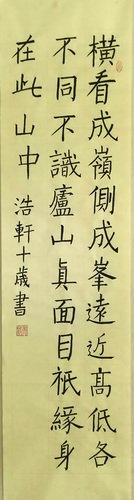 橫看成嶺側成峯遠近高低各
不同不識廬山眞面目祇緣身
在此山中 浩軒十歲書